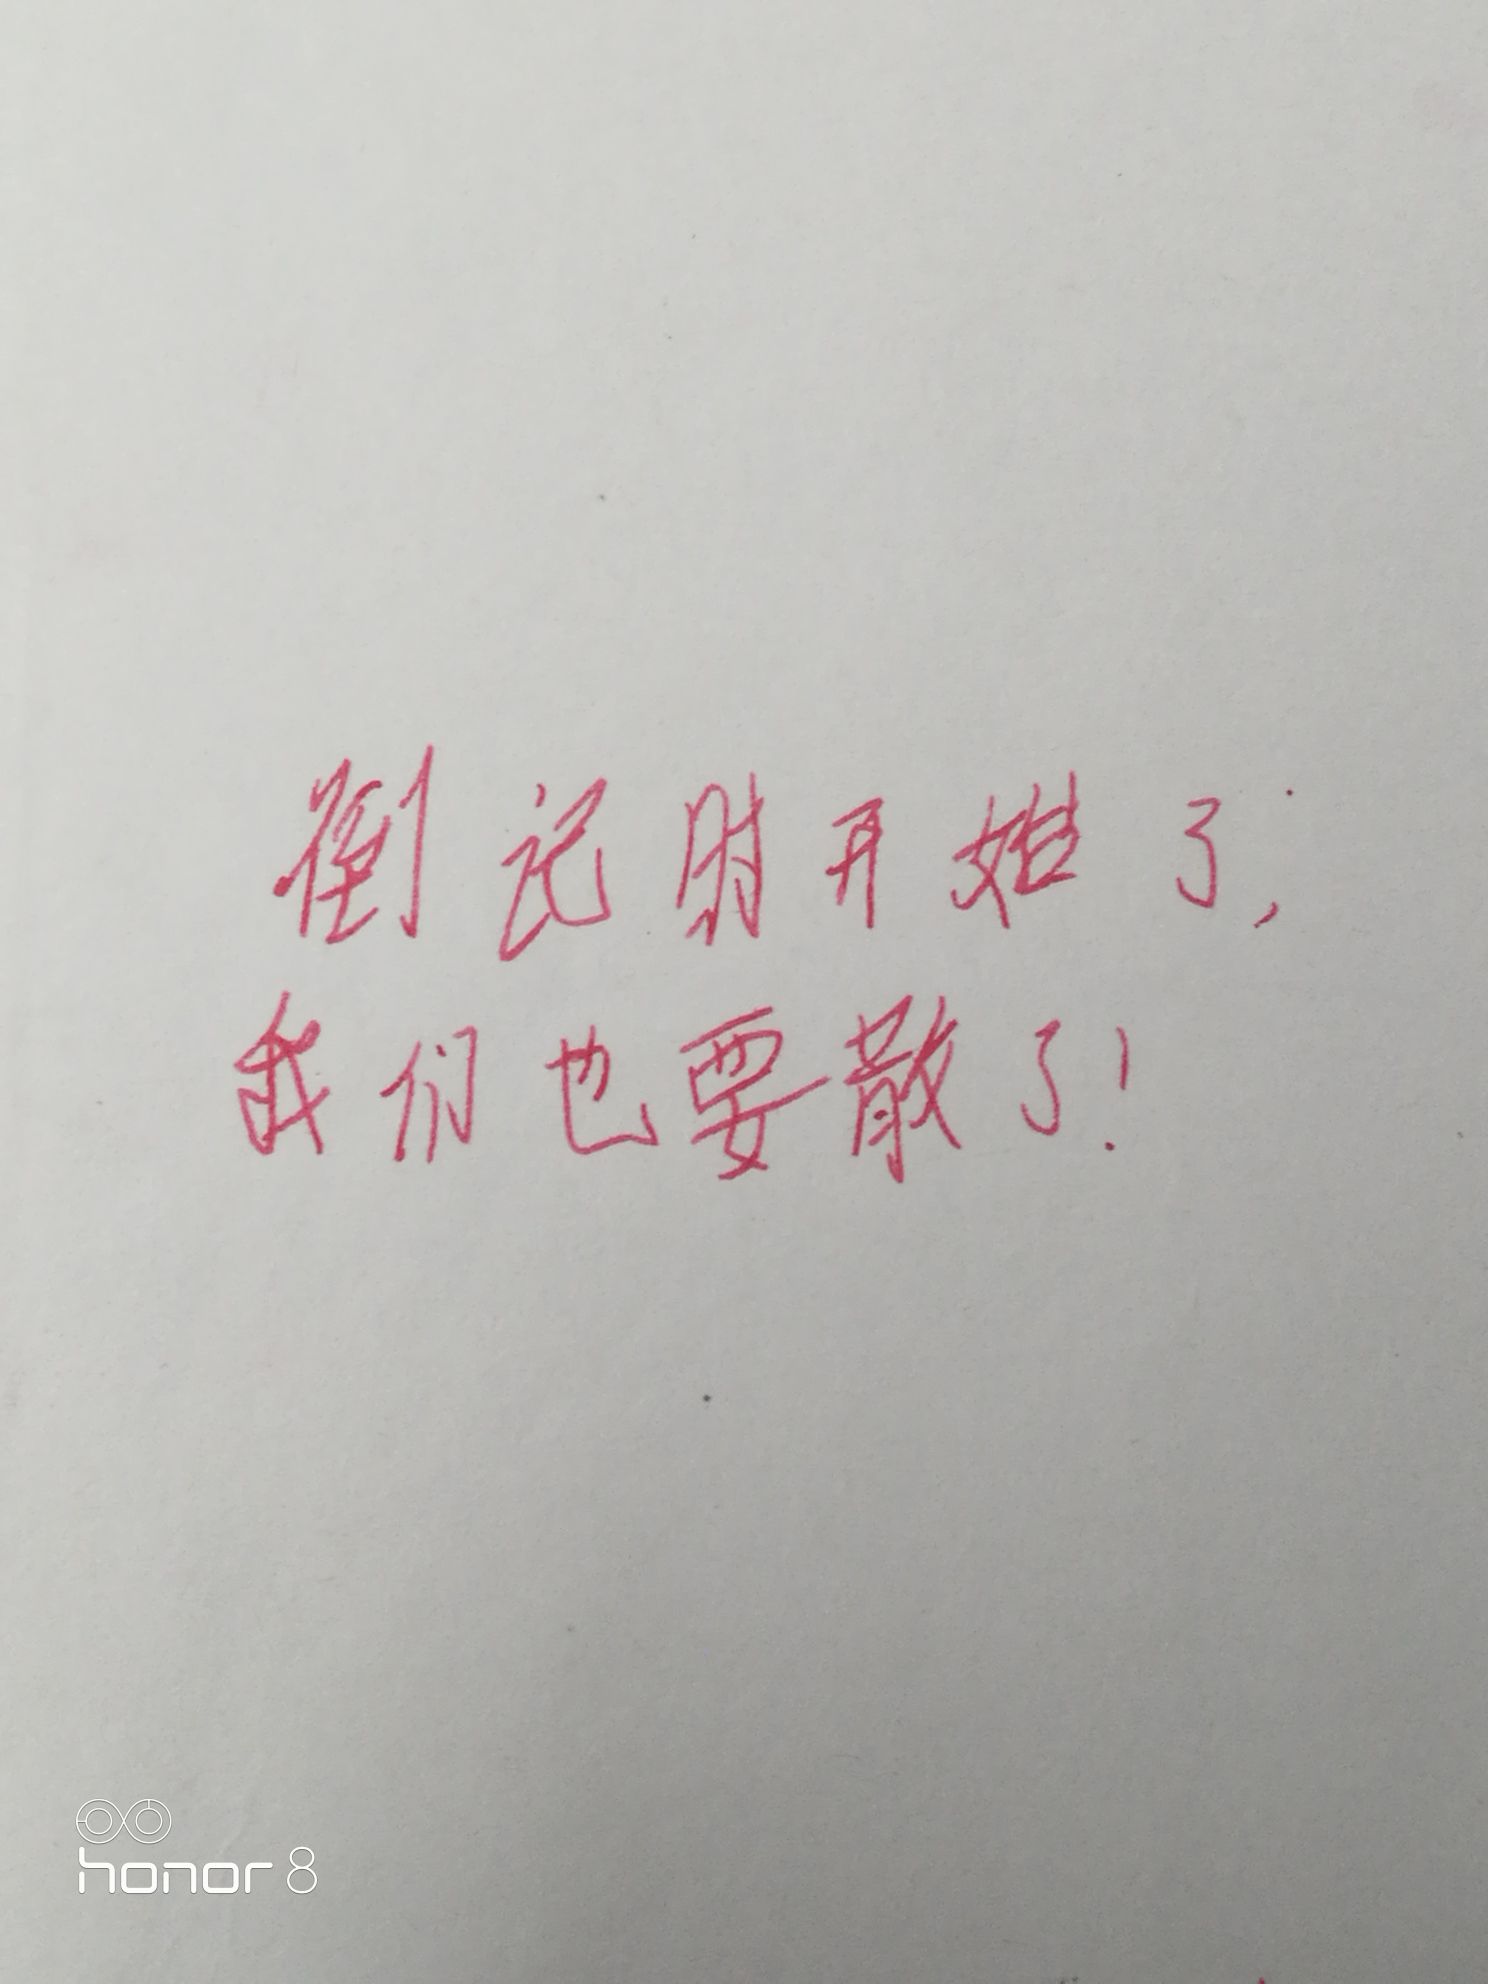 倒记时开始了，
我们也要散了！
honor 8